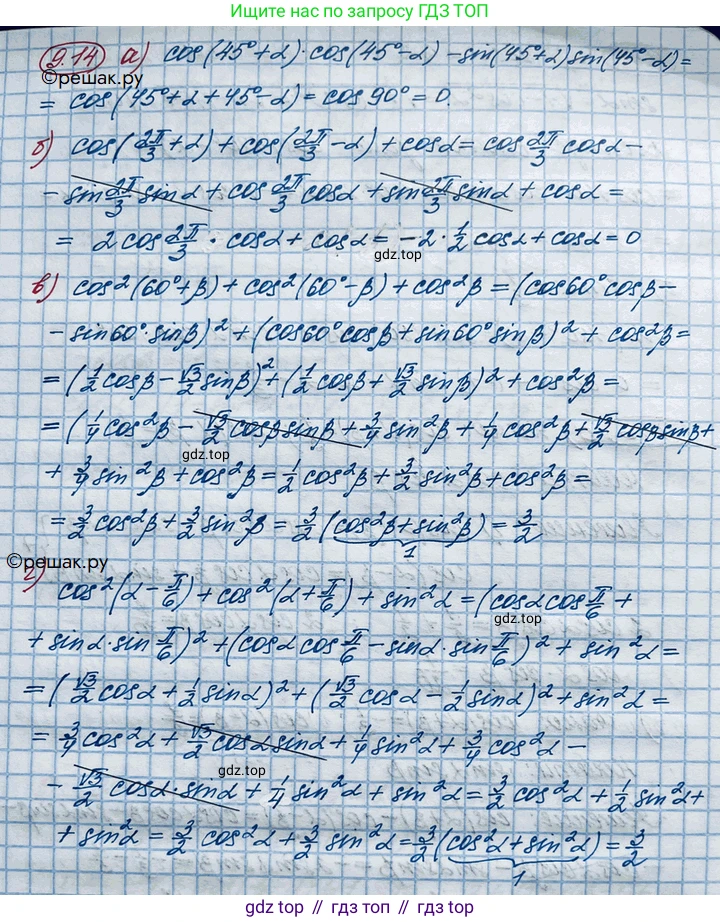 Ищите нас по запросу ГДЗ ТОП
9.14 а) cos(45°+α)·cos(45°-α) - sin(45°+α)sin(45°-α) =
©решак.ру
= cos(45°+α+45°-α) = cos 90° = 0.
б) cos(2π/3+α) + cos(2π/3-α) + cosα = cos 2π/3 cosα -
- sin 2π/3 sinα + cos 2π/3 cosα + sin 2π/3 sinα + cosα =
= 2cos 2π/3 · cosα + cosα = -2·1/2 cosα + cosα = 0
gdz.top
в) cos²(60°+β) + cos²(60°-β) + cos²β = (cos60°cosβ -
- sin60°·sinβ)² + (cos60°cosβ + sin60°sinβ)² + cos²β =
= (1/2 cosβ - √3/2 sinβ)² + (1/2 cosβ + √3/2 sinβ)² + cos²β =
= (1/4 cos²β - √3/2 cosβsinβ + 3/4 sin²β + 1/4 cos²β + √3/2 cosβsinβ +
gdz.top
+ 3/4 sin²β + cos²β = 1/2 cos²β + 3/2 sin²β + cos²β =
= 3/2 cos²β + 3/2 sin²β = 3/2 (cos²β + sin²β) = 3/2
1
©решак.ру
г) cos²(α - π/6) + cos²(α + π/6) + sin²α = (cosα cos π/6 +
+ sinα·sin π/6)² + (cosα cos π/6 - sinα·sin π/6)² + sin²α =
= (√3/2 cosα + 1/2 sinα)² + (√3/2 cosα - 1/2 sinα)² + sin²α =
= 3/4 cos²α + √3/2 cosα sinα + 1/4 sin²α + 3/4 cos²α -
gdz.top
- √3/2 cosα·sinα + 1/4 sin²α + sin²α = 3/2 cos²α + 1/2 sin²α +
+ sin²α = 3/2 cos²α + 3/2 sin²α = 3/2 (cos²α + sin²α) = 3/2
1
gdz top // гдз топ // gdz.top